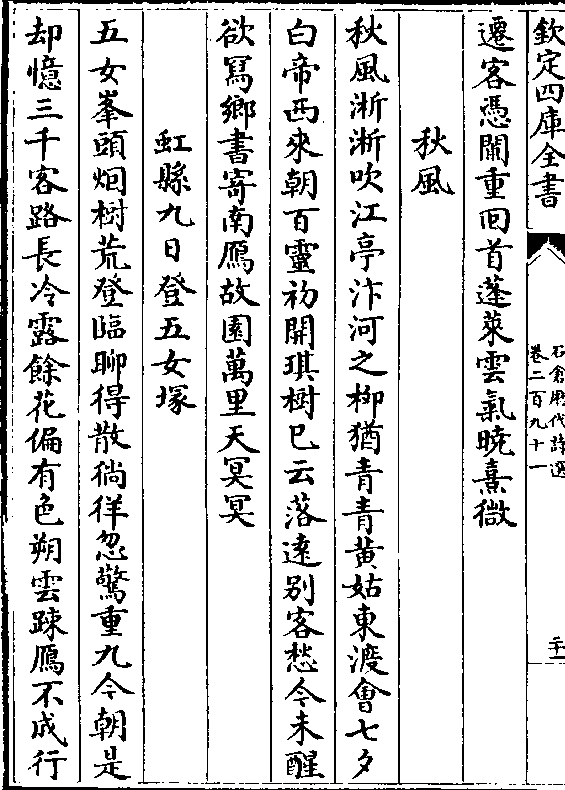 欽定四庫全書
石倉歷代詩選
卷二百九十一
二十一
遷客憑闌重回首蓬萊雲氣曉熹微
秋風
秋風淅淅吹江亭汴河之柳猶青青黃姑東渡會七夕
白帝西來朝百靈初開琪樹已云落遠别客愁今未醒
欲冩鄉書寄南鴈故園萬里天冥冥
虹縣九日登五女塚
五女峯頭烟樹荒登臨聊得散徜徉忽驚重九今朝是
却憶三千客路長冷露餘花偏有色朔雲踈鴈不成行